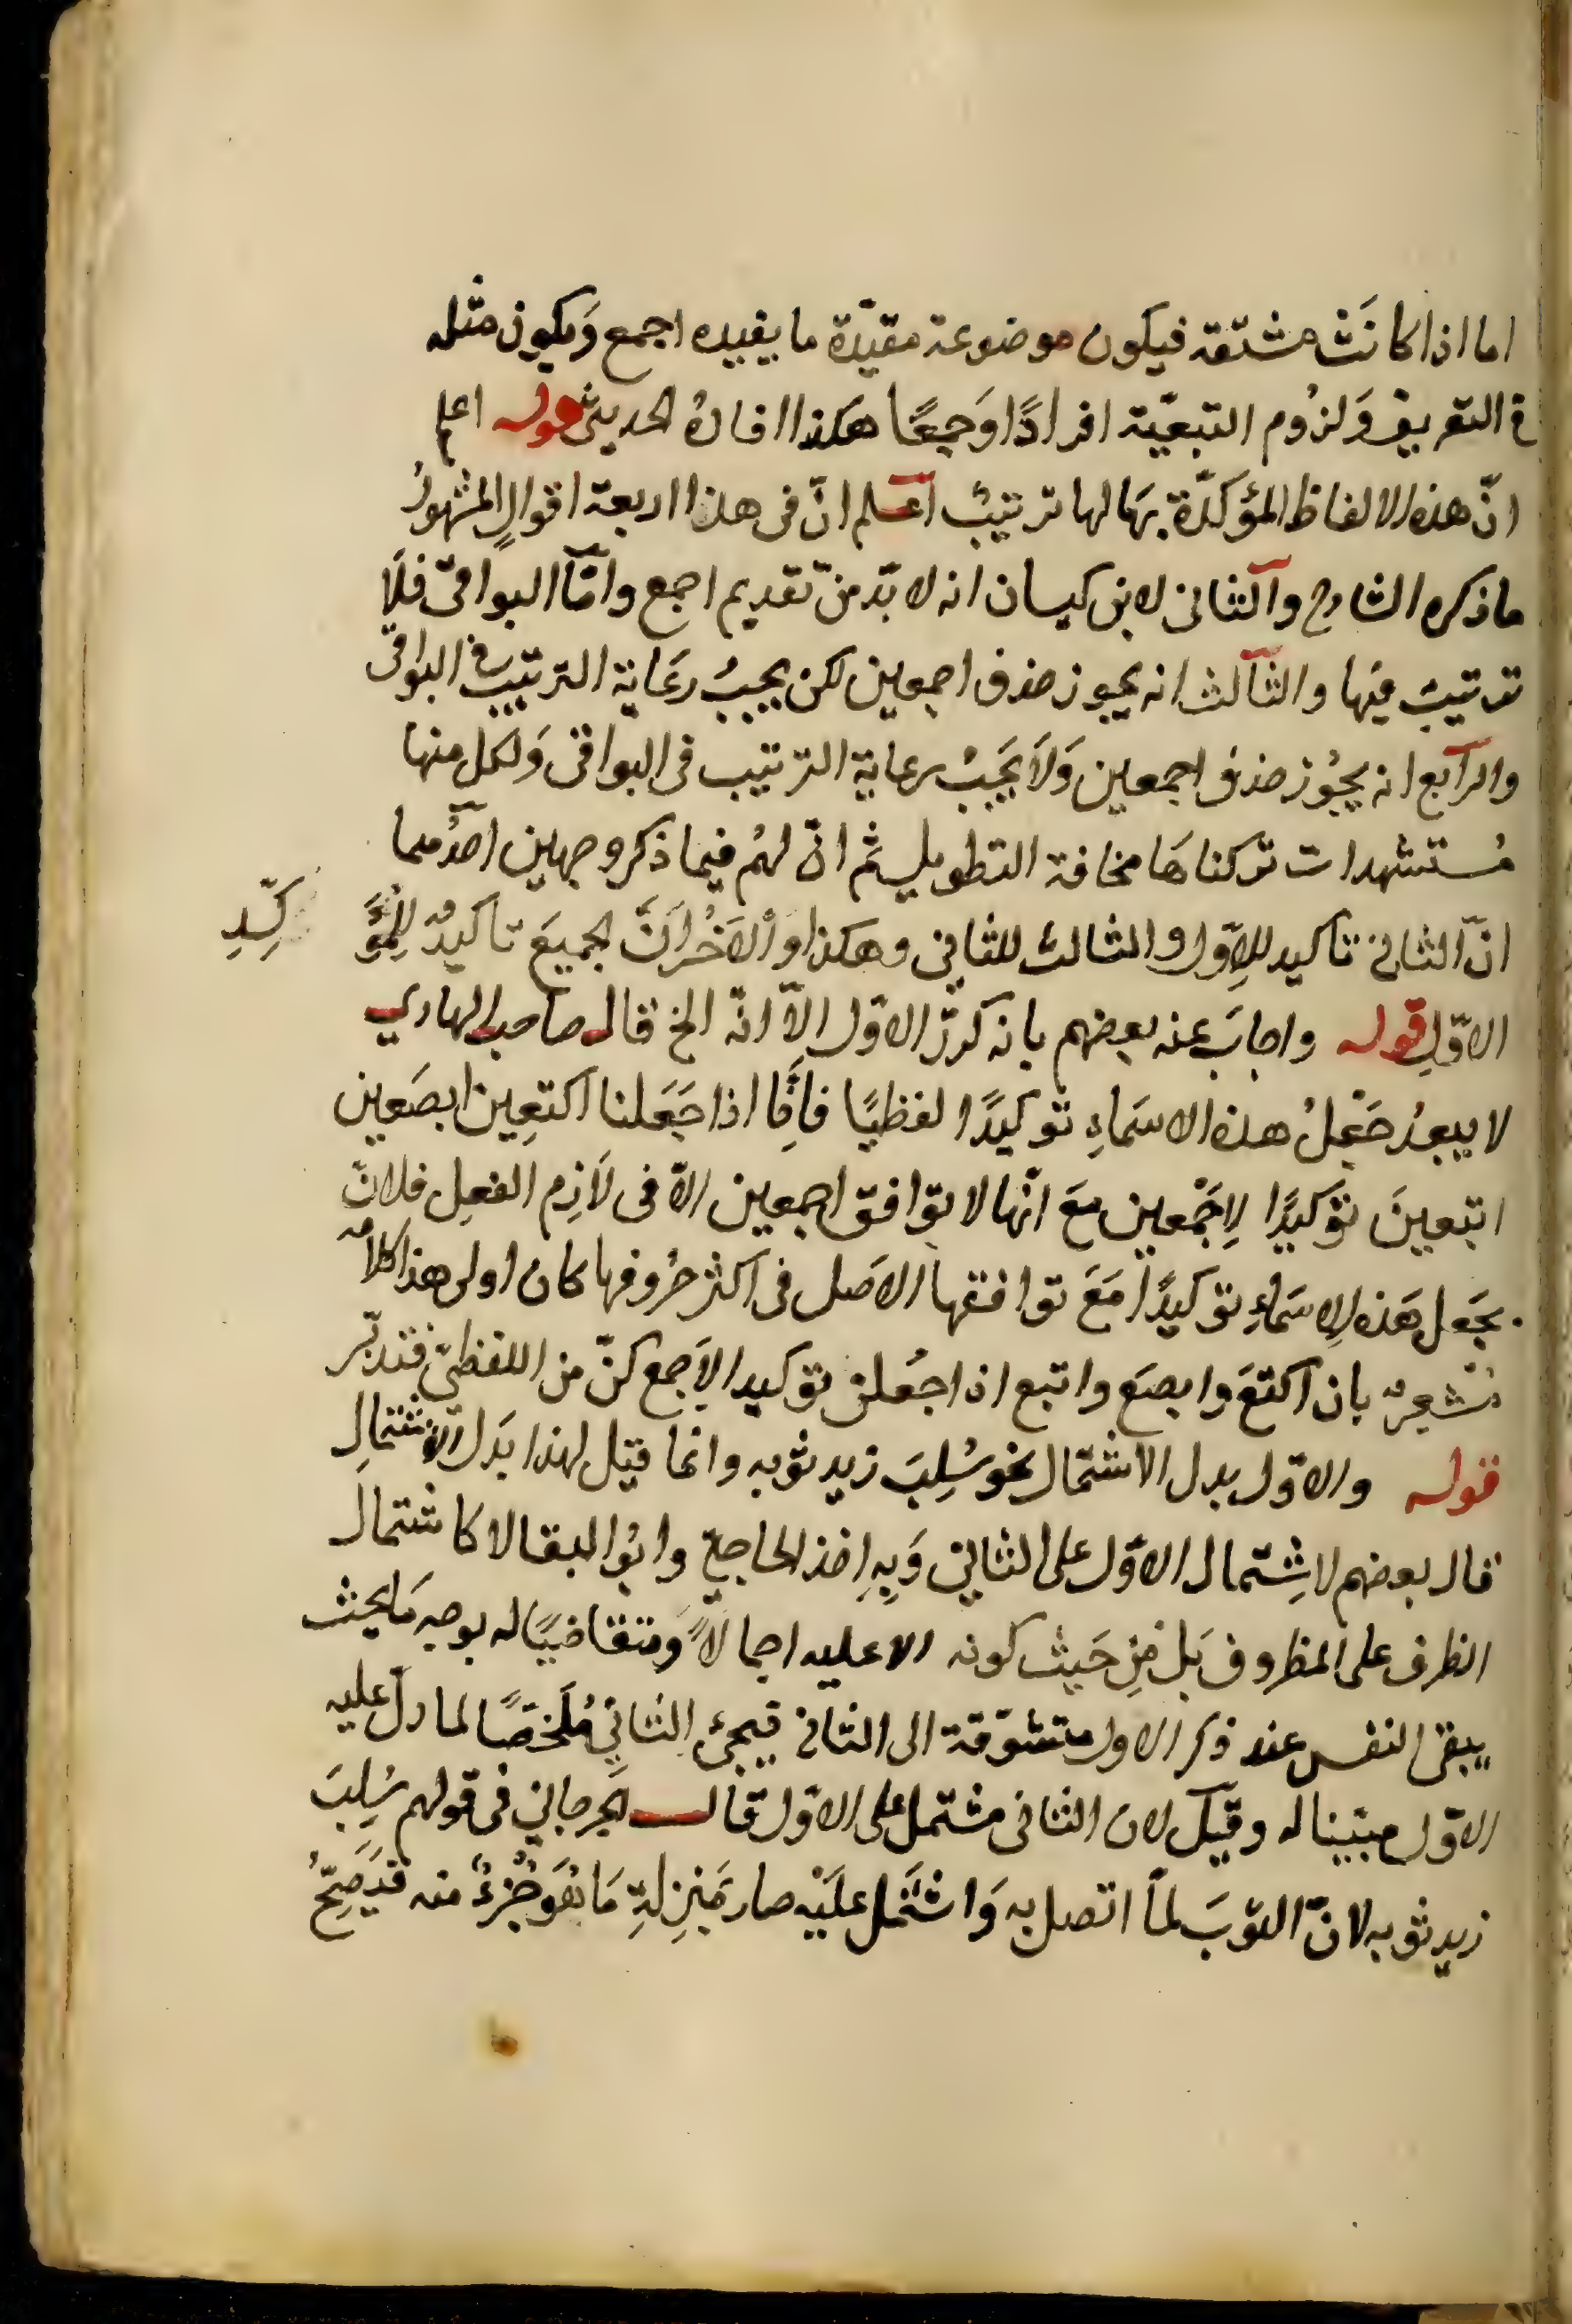 اما اذا كانَتْ مشتقة فيكون موضوعة مقيّدة ما يفيده اجمع وَيكون مثله
في التعريف وَلزُوم التبعيّة افرادًا وَجمعًا هكذا افادهُ الحديثى قوله اعلم
انّ هذه الالفاظ المؤكدّة بهَا لها ترتيبٌ اعلم انّ فى هذا اربعة اقوالٍ المشهورُ
ما ذكره الشارح والثانى لابن كيسان انه لا بدّ منّ تقديم اجمع وامّا البواقى فلَا
ترتيبَ فيها والثالث انه يجوز حذف اجمعين لكن يجبُ رعَاية الترتيب فى البواقى
والرابع انه يجُوز حذف اجمعين وَلَا يَجبُ رعاية الترتيب فى البواقى وَلكل منها
مُستشهدات تركناهَا مخافة التطويل ثم انّ لهُم فيما ذكر وجهين احدُهما
انّ الثانى تاكيد للاوّل والثالث للثانى وهكذا والآخرُ اَنّ الجميعَ تاكيدٌ لِلمُؤَكِّدِ
الاوّلِ قوله واجابَ عنه بعضهم بانه كرّر الاوّل الاّ انّه الخ قال صاحب الهادي
لا يبعدُ جَعْلُ هذه الاسمَاءِ توكيدًا لفظيًا فاِنَّا اذا جَعَلنا اكتعِين ابصَعين
ابتعينَ توكيدًا لِاَجْمعين معَ انّها لا توافق اجمعين الاّ فى لَازِم الفعِل فلانّ
يجعَل هَذه الاِسمَاءِ توكيدًا مَعَ توافقها الاصَل فى اكثر حرُوفها كان اولى هذا كلامُه
مُشعرٌ بان اكتعَ وابصعَ وابتع اذا جُعلن توكيد الاَجمع كنّ من اللفظىّ فتدبّر
قوله والاوّل بدل الاشتمال نحو سُلِبَ زيد ثوبه وانما قيل لهذا بدَل الاشتمالِ
قال بعضهم لاشِتمال الاوّل على الثانِى وَبِهِ اخذ الحاجبىّ وابُو البقا لا كاشتمال
الظرف على المظروف بَل مِن حَيث كونه الا عليه اجمالاً وَمتقاضيًا له بوجه مَا بحيث
يبقى النفس عند ذكر الاول متشوّقة الى الثانى فيجئ الثانِى مُلَخّصًا لما دلّ عليه
الاوّل مبيّنا له وقيل لان الثانى مشتمل على الاوّل قال الجرجانِى فى قولهم سُلِبَ
زيد ثوبه لانّ الثوبَ لماّ اتصل به وَاشتمَل علَيْه صار بمَنزِلةِ مَا هُوَ جُزءٌ منه قد يَصِحُّ